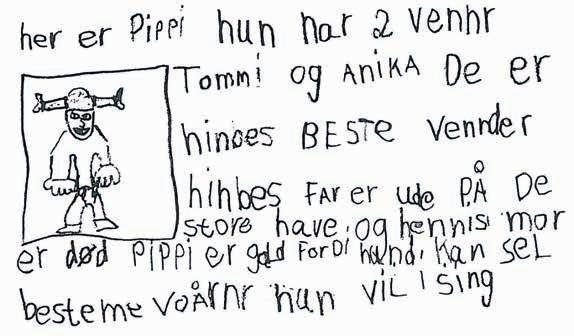 her er Pippi hun har 2 venhr
Tommi og ANIKA De er
hinbes BESTE vennder
hihbes FAr er ude PÅ De
store have og hennisi mor
er død PiPPi er gald ForDi hundi Kan seL
besteme VoÅrnr hun viL i sing